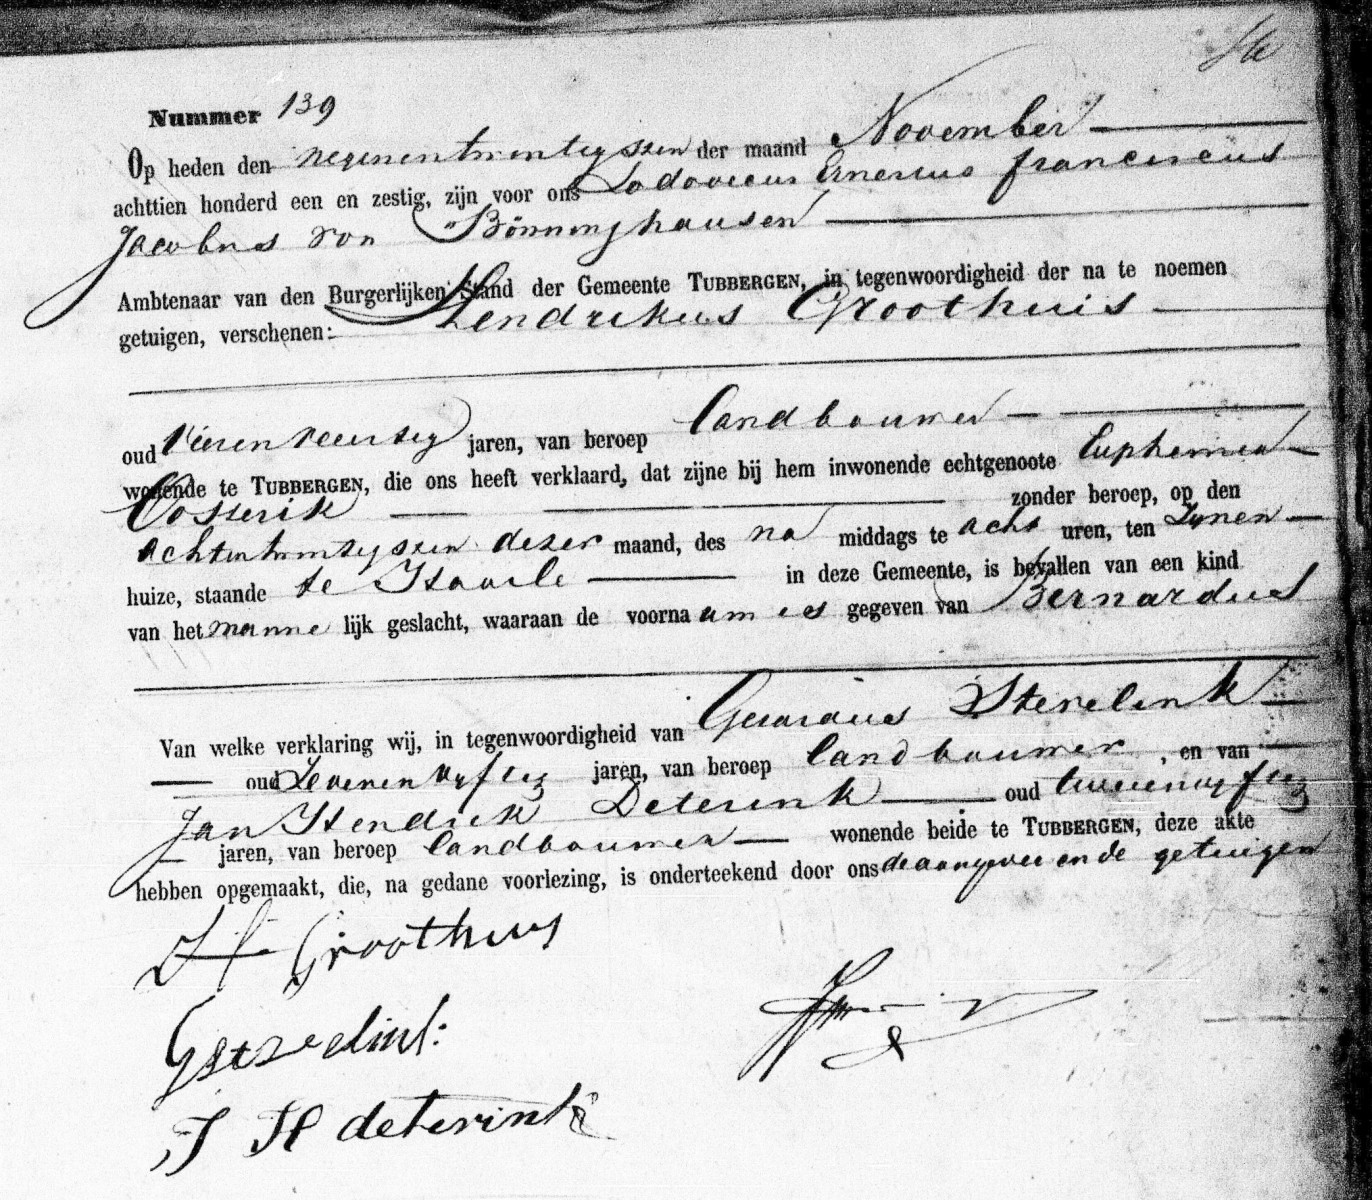 Nummer 139
Op heden den negenentwintigsten der maand November
achttien honderd een en zestig, zijn voor ons Lodovicus Ernestus franciscus
Jacobus von Bönninghausen
Ambtenaar van den Burgerlijken Stand der Gemeente TUBBERGEN, in tegenwoordigheid der na te noemen
getuigen, verschenen: Hendrikus Groothuis
oud vierenveertig jaren, van beroep landbouwer
wonende te TUBBERGEN, die ons heeft verklaard, dat zijne bij hem inwonende echtgenoote Euphemia
Oosterik zonder beroep, op den
achtentwintigsten dezer maand, des na middags te acht uren, ten zynen
huize, staande te Haarle in deze Gemeente, is bevallen van een kind
van het manne lijk geslacht, waaraan de voornaam is gegeven van Bernardus
Van welke verklaring wij, in tegenwoordigheid van Gerardus
oud zevenenvyftig jaren, van beroep landbouwer, en van
Jan Hendrik Deterink oud tweeenvyftig
jaren, van beroep landbouwer wonende beide te TUBBERGEN, deze akte
hebben opgemaakt, die, na gedane voorlezing, is onderteekend door ons de aangever en de getuigen
H Groothuus
J H deterink